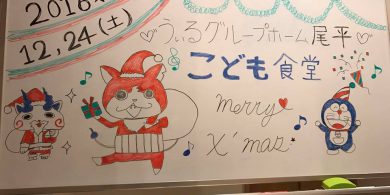 2016.
12,24(土)
♡うぃるグループホーム尾平♡
こども食堂
merry♥
X'mas